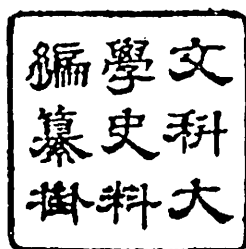 文科大
學史料
編纂掛